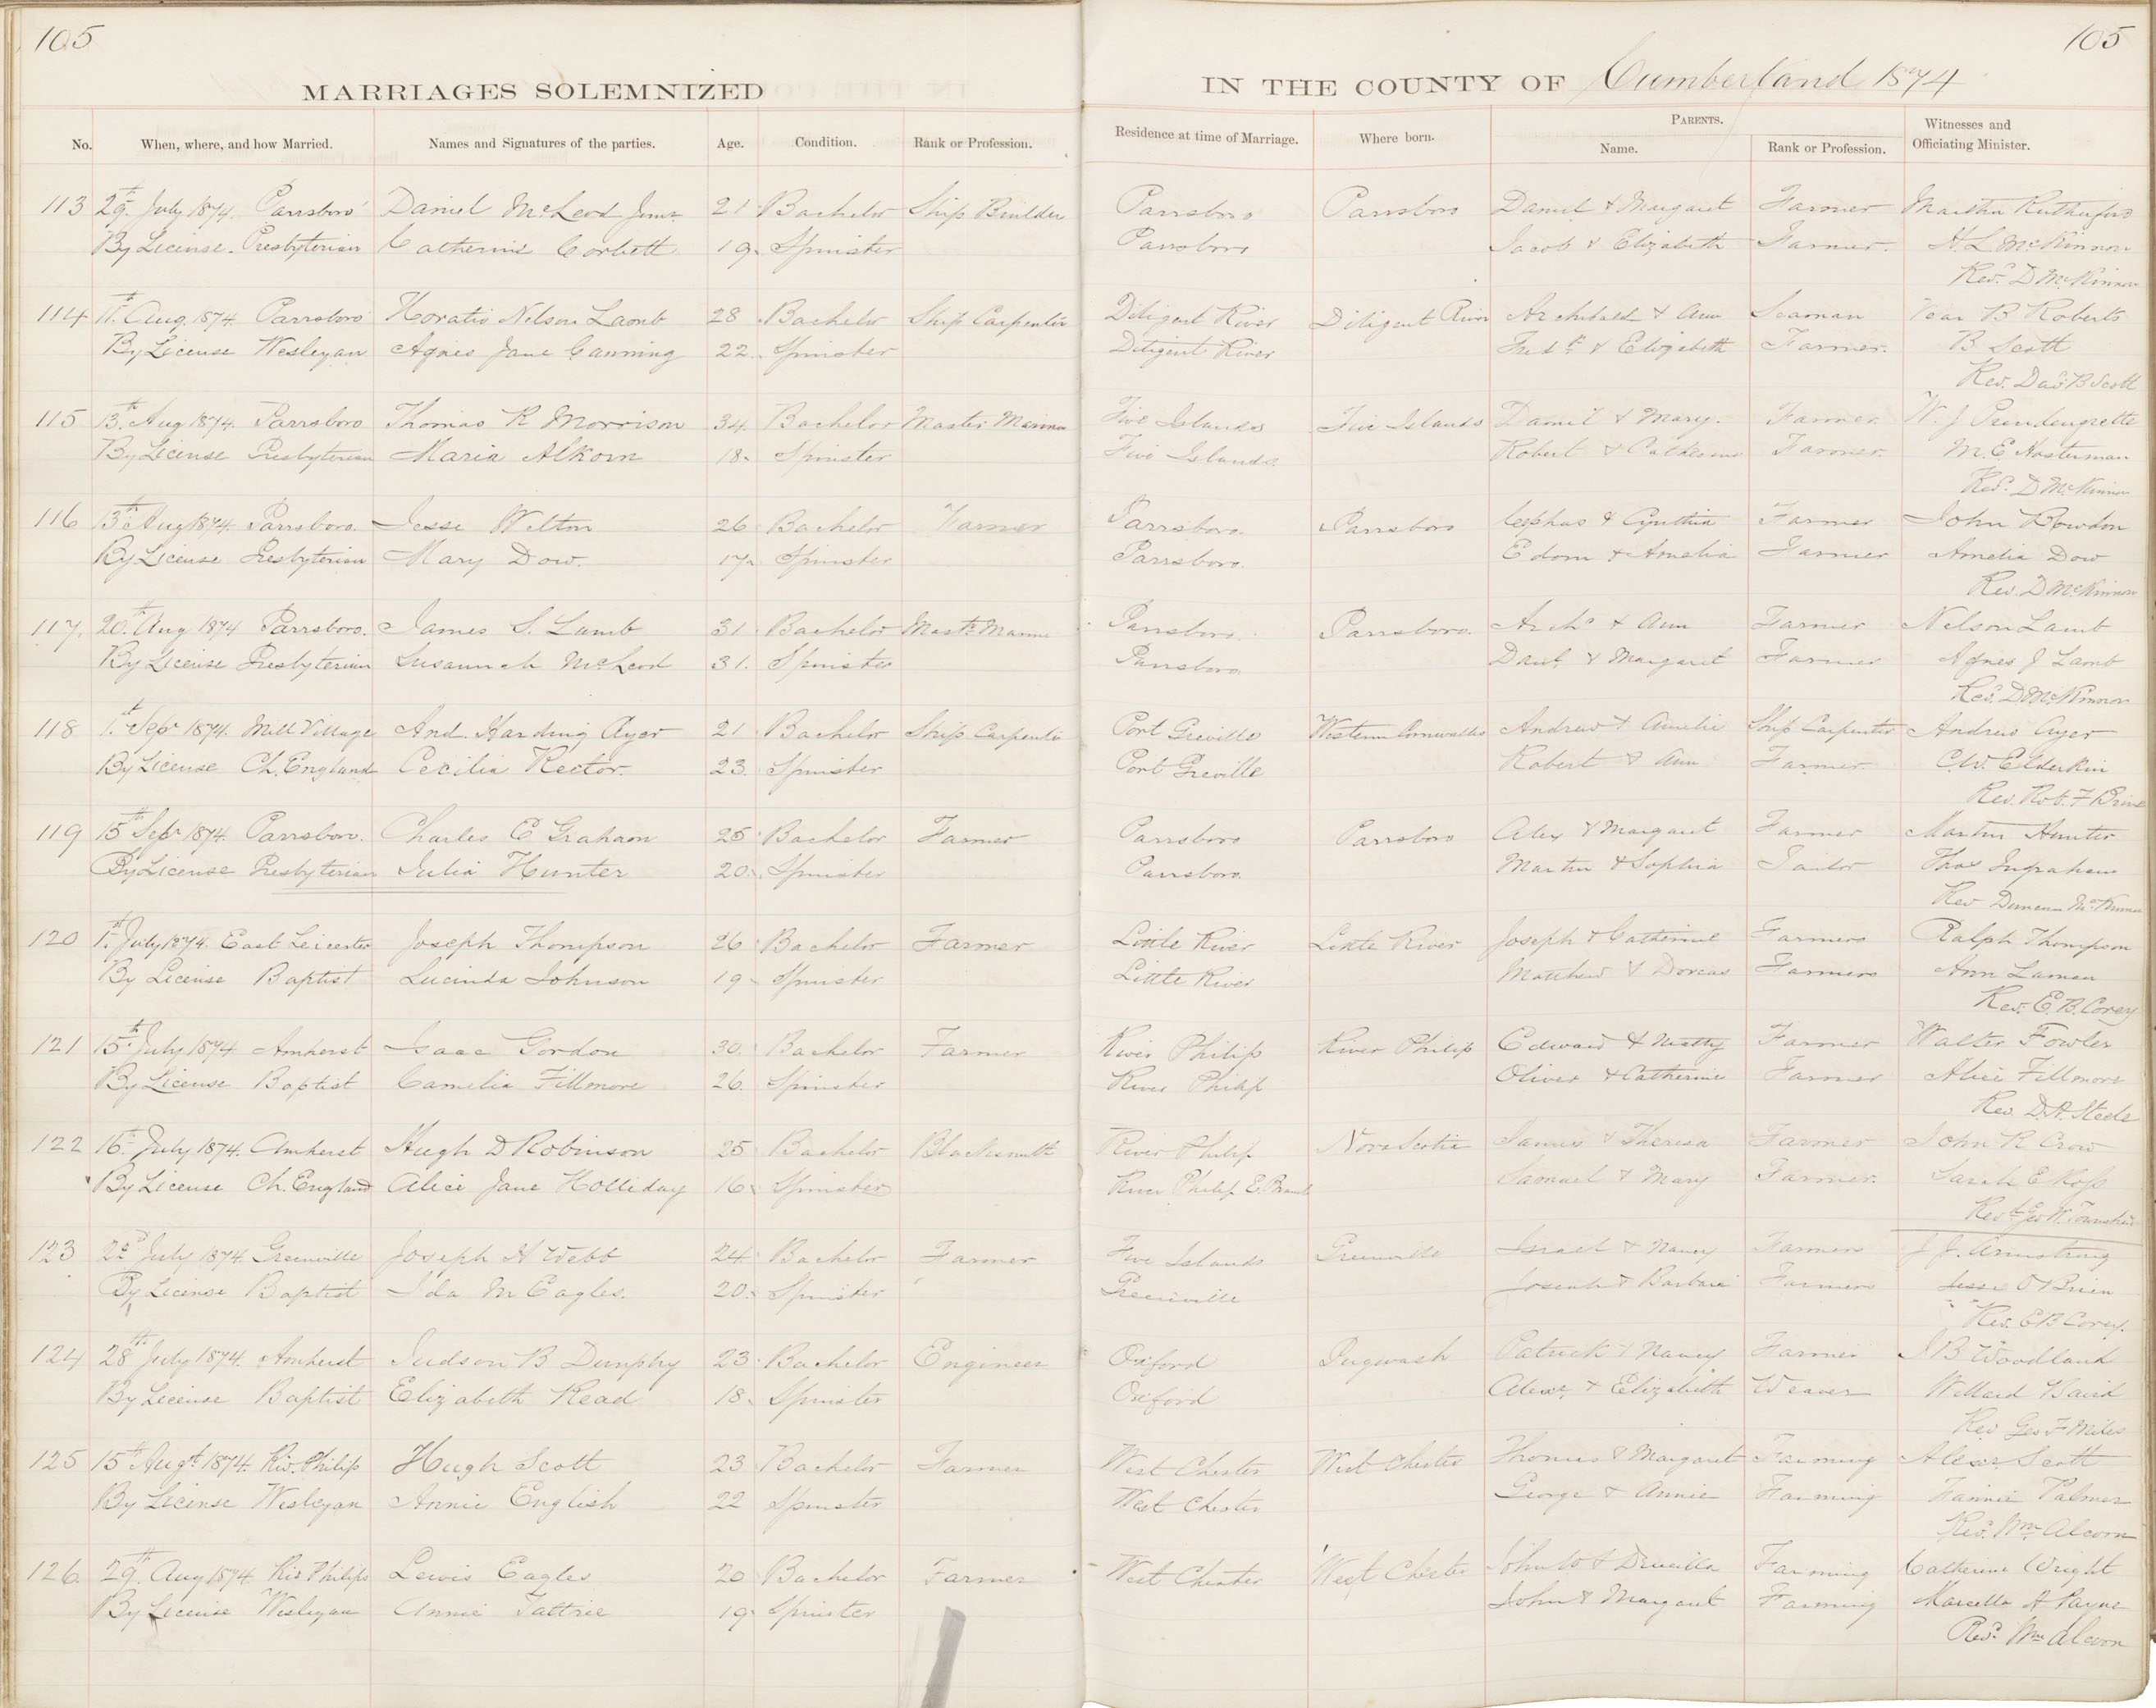 105
105
MARRIAGES SOLEMNIZED IN THE COUNTY OF Cumberland 1874
No. When, where, and how Married. Names and Signatures of the parties. Age. Condition. Rank or Profession. Residence at time of Marriage. Where born. PARENTS. Name. Rank or Profession. Witnesses and Officiating Minister.
113 29th July 1874. Parrsboro' Daniel McLeod Junr 21 Bachelor Ship Builder Parrsboro Parrsboro Daniel & Margaret Farmer Martha Rutherford
By License. Presbyterian Catherine Corbett 19. Spinster Parrsboro Jacob & Elizabeth Farmer. H. L McKinnon
Revd. D McKinnon
114 11th Aug. 1874. Parrsboro' Horatio Nelson Lamb 28 Bachelor Ship Carpenter Diligent River Diligent River Archibald & Ann Seaman B Roberts
By License Wesleyan Agnes Jane Canning 22. Spinster Diligent River Fredk & Elizabeth Farmer. B Scott
Rev. Davd B Scott
115 13th Aug 1874. Parrsboro Thomas R Morrison 34. Bachelor Master Mariner Five Islands Five Islands Daniel & Mary. Farmer. W. J
By License Presbyterian Maria Alkorn 18. Spinster Five Islands. Robert & Catherine Farmer. M. E Hosterman
Revd. D McKinnon
116 13th Aug 1874. Parrsboro. Jesse Welton 26 Bachelor Farmer Parrsboro. Parrsboro Cephas & Cynthia Farmer John Bowdon
By License Presbyterian Mary Dow. 17. Spinster Parrsboro. Edom & Amelia Farmer Amelia Dow
Rev. D McKinnon
117. 20th Aug 1874 Parrsboro. James S. Lamb 31 Bachelor Mastr Marine Parrsboro. Parrsboro. Archd & Ann Farmer Nelson Lamb
By License Presbyterian Susannah McLeod 31. Spinster Parrsboro. Danl & Margaret Farmer Agnes J Lamb
Revd. D McKinnon
118 1st Sepr 1874. Mill Village And. Harding Ayer 21 Bachelor Ship Carpenter Port Greville Western Cornwallis Andrew & Amelia Ship Carpenter Andrew Ayer
By License Ch. England Cecilia Rector. 23. Spinster Port Greville Robert & Ann Farmer. C. W. Elderkin
Rev. Robt. F Brine
119 15th Sepr 1874. Parrsboro. Charles E Graham 25 Bachelor Farmer Parrsboro Parrsboro Alex & Margaret Farmer Martin Hunter
By License Presbyterian Julia Hunter 20. Spinster Parrsboro. Martin & Sophia Tailor Thos Ingraham
Rev Duncan McKinnon
120 1st July 1874. East Leicester Joseph Thompson 26 Bachelor Farmer Little River Little River Joseph & Catherine Farmers Ralph Thompson
By License Baptist Lucinda Johnson 19 Spinster Little River Matthew & Dorcas Farmers Ann Laman
Rev. E. B. Corey
121 15th July 1874 Amherst Isaac Gordon 30. Bachelor Farmer River Philip River Philip Edward & Matty Farmer Walter Fowler
By License Baptist Camelia Fillmore 26. Spinster River Philip Oliver & Catherine Farmer Alice Fillmore
Rev. D. A. Steele
122 16th July 1874. Amherst Hugh D Robinson 25 Bachelor Blacksmith River Philip Nova Scotia James & Theresa Farmer John R Crow
By License Ch. England Alice Jane Holliday 16 Spinster River Philip E. Branch Samuel & Mary Farmer. Sarah E Ross
Revd Geo W. Townshend
123 22d July 1874. Greenville Joseph H Webb 24 Bachelor Farmer Five Islands Greenville Israel & Nancy Farmers J J. Armstrong
By License Baptist Ida M Eagles. 20. Spinster Greenville Joseph & Barbara Farmers Jesse O'Brien
Rev. E B Corey.
124 28th July 1874. Amherst Judson B Dunphy 23. Bachelor Engineer Oxford Pugwash Patrick & Nancy Farmer J B Woodland
By License Baptist Elizabeth Read 18. Spinster Oxford Alexr. & Elizabeth Weaver Willard Baird
Rev Geo F Miles
125 15th Augt 1874. Riv. Philip Hugh Scott 23 Bachelor Farmer West Chester West Chester Thomas & Margaret Farming Alexr. Scott
By License Wesleyan Annie English 22 Spinster West Chester George & Annie Farming Fannie Palmer
Revd. Wm Alcorn
126. 29th Aug 1874. Riv Philip Lewis Eagles 20 Bachelor Farmer West Chester West Chester John W & Drucilla Farming Catherine Wright
By License Wesleyan Annie Tattrie 19 Spinster John & Margaret Farming Marcella A Payne
Revd. Wm Alcorn